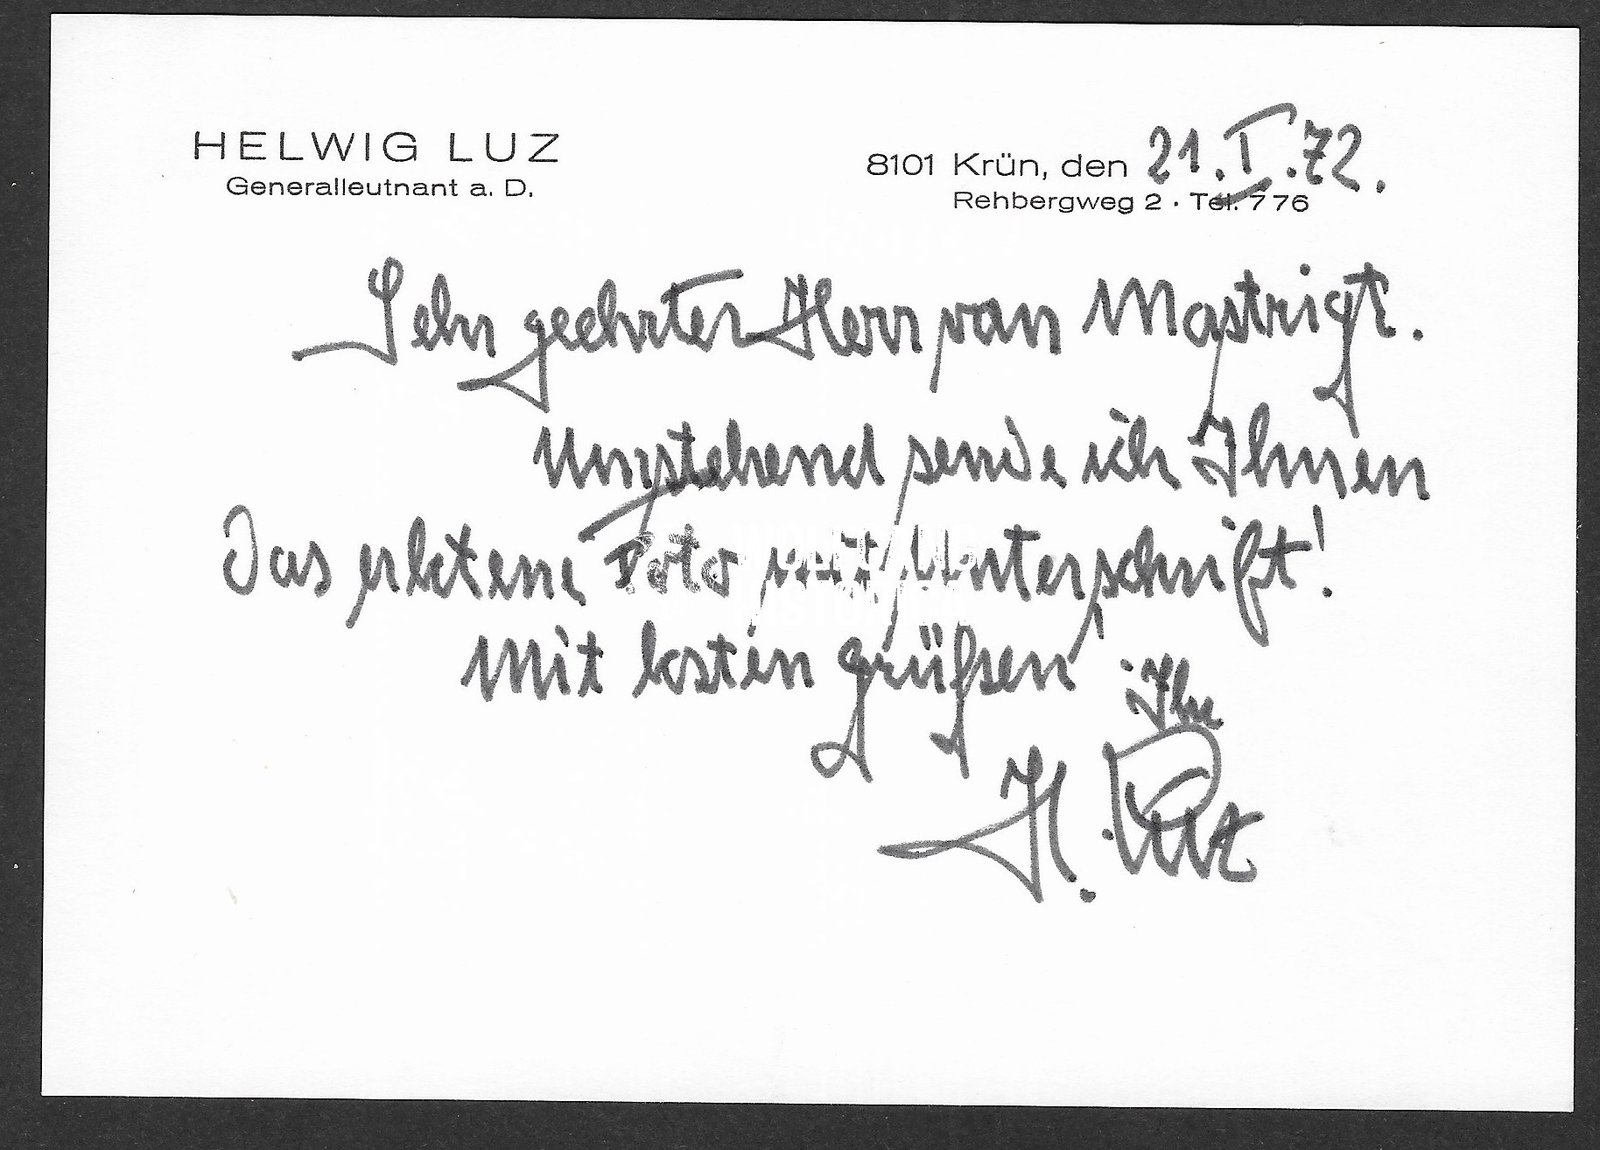 HELWIG LUZ
Generalleutnant a. D.
8101 Krün, den 21.I.72.
Rehbergweg 2 · Tel. 776
Sehr geehrter Herr van Mastrigt.
Umstehend sende ich Ihnen
das erbetene Foto mit Unterschrift!
Mit besten Grüßen
Ihr
H. Luz